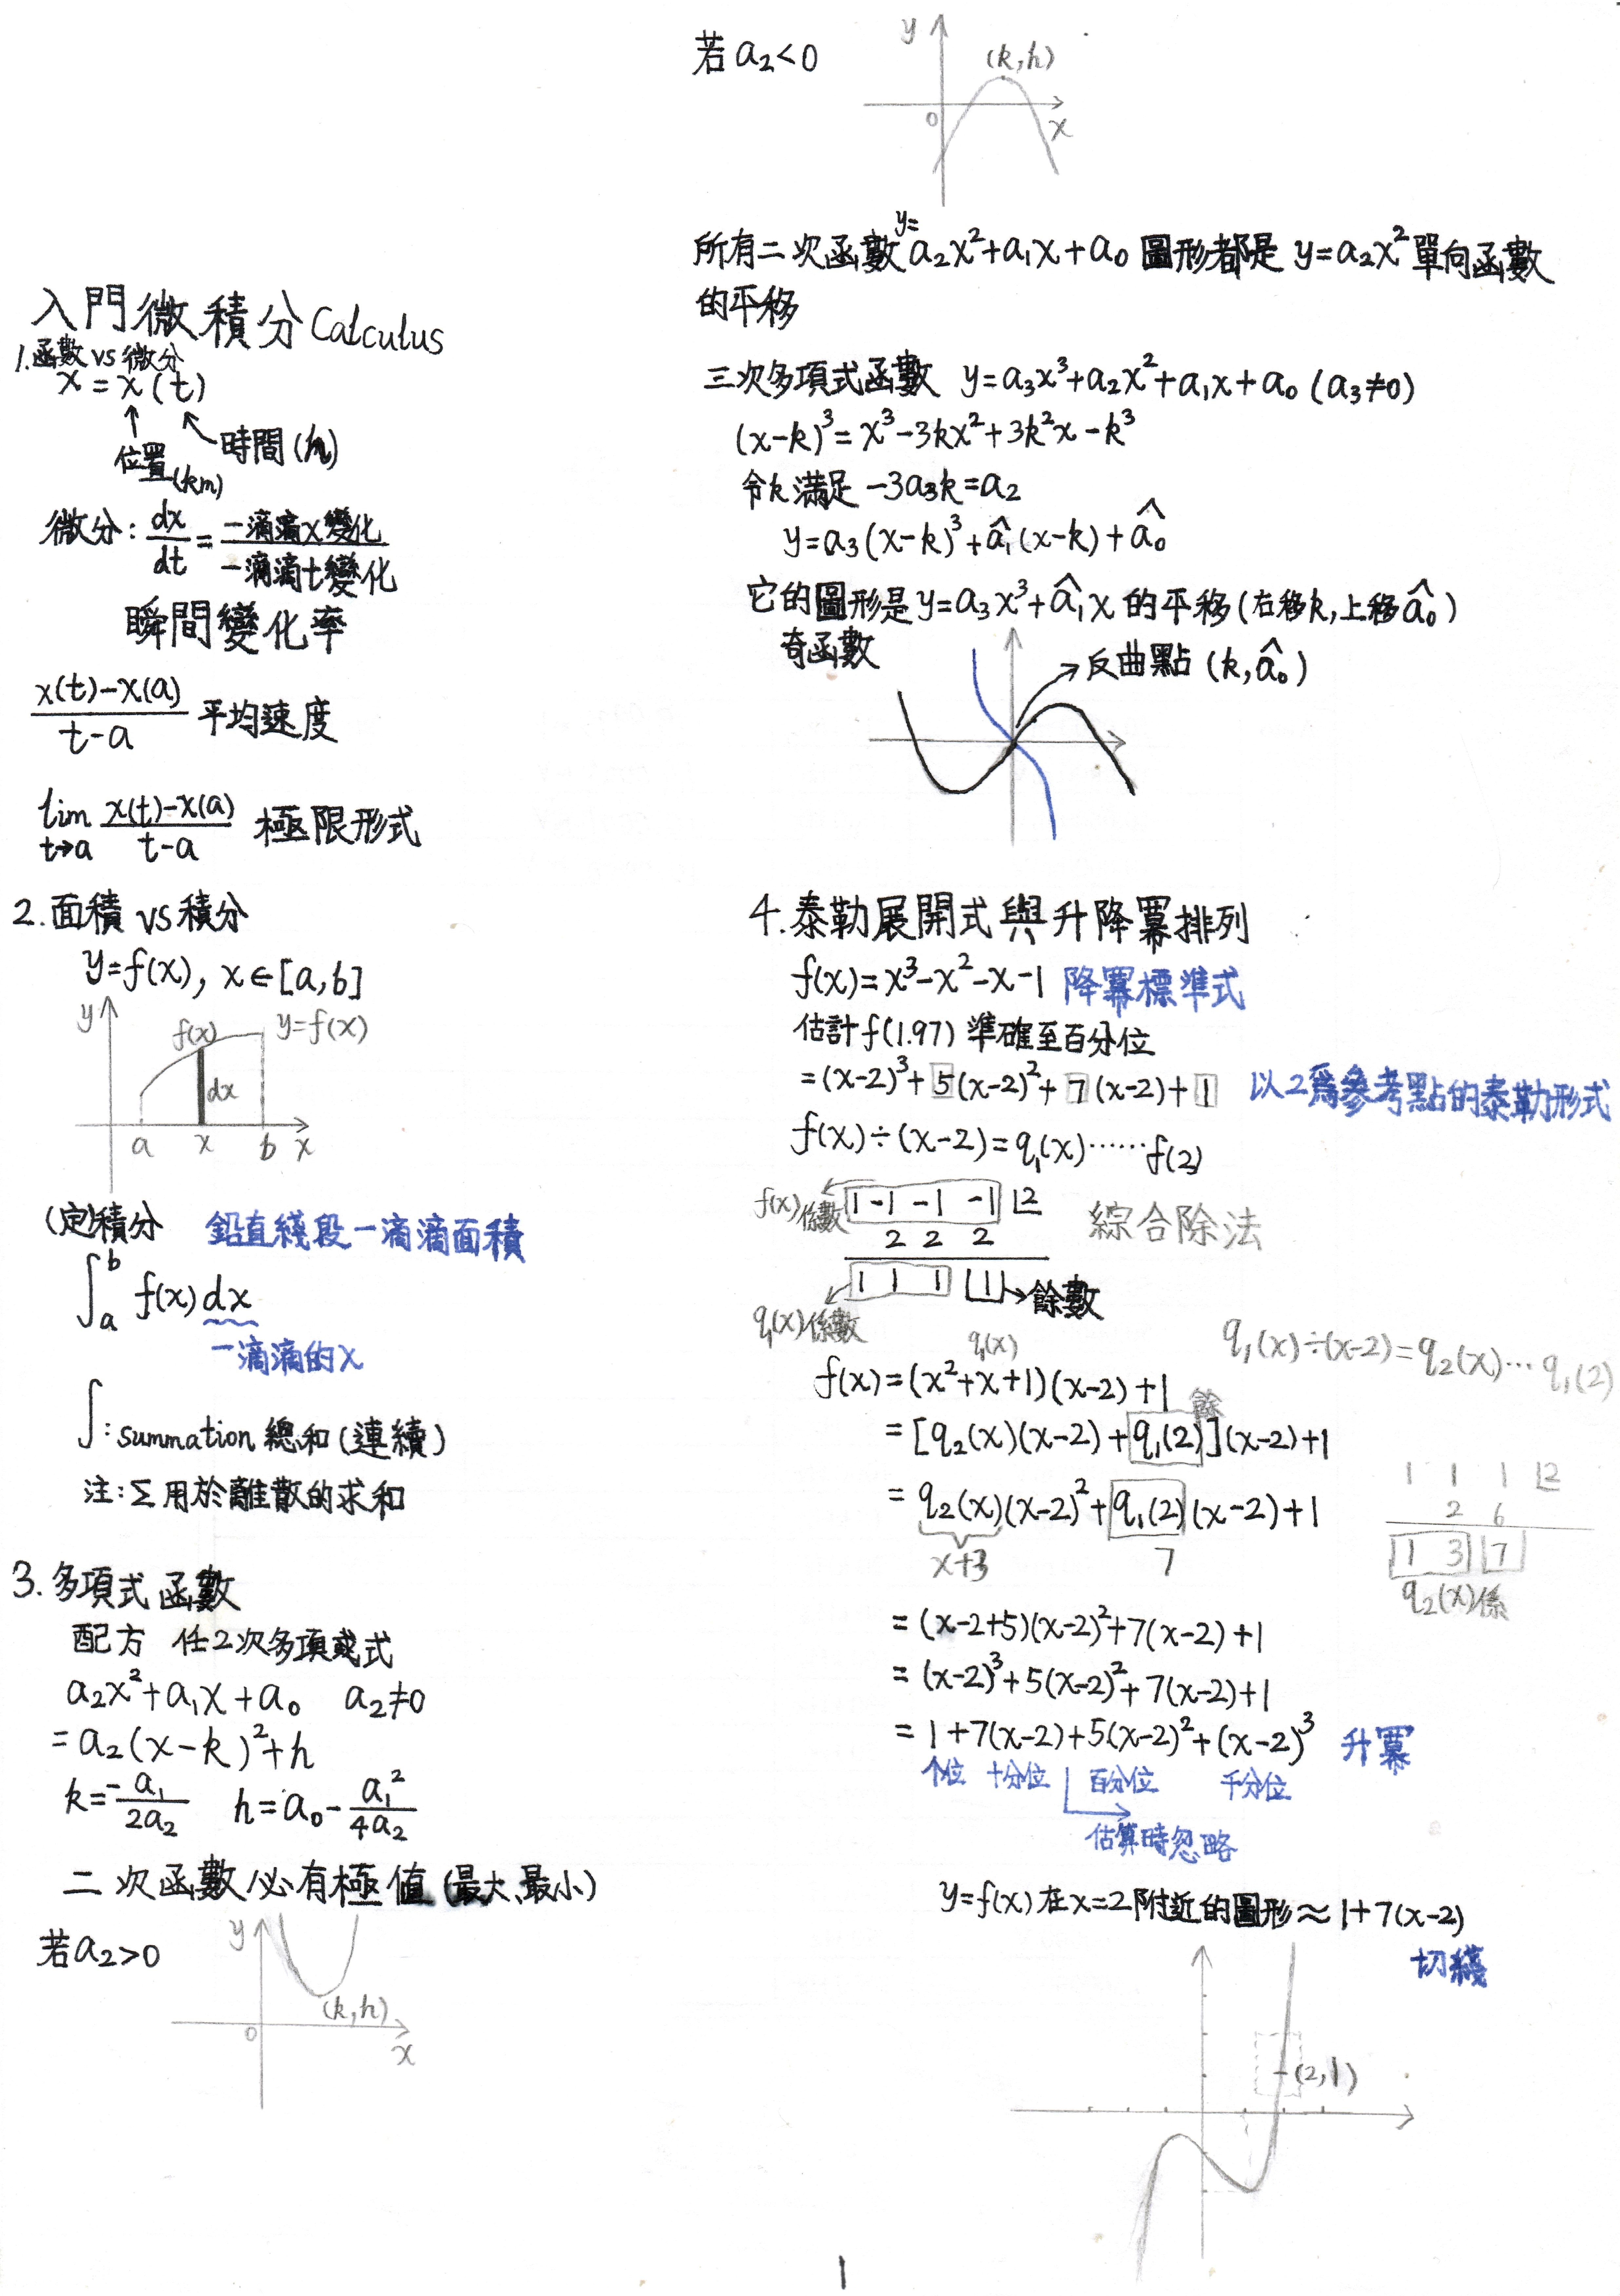 入門微積分 Calculus
1. 函數 vs 微分
x = x(t)
位置(km)
時間(h)
微分: dx/dt = 一滴滴x變化/一滴滴t變化
瞬間變化率
(x(t)-x(a))/(t-a) 平均速度
lim t→a (x(t)-x(a))/(t-a) 極限形式
2. 面積 vs 積分
y=f(x), x∈[a,b]
y
f(x)
y=f(x)
dx
a x b x
(定)積分 鉛直綫段一滴滴面積
∫_a^b f(x)dx
一滴滴的x
∫: summation 總和(連續)
注: Σ用於離散的求和
3. 多項式函數
配方 任2次多項式
a₂x²+a₁x+a₀ a₂≠0
=a₂(x-k)²+h
k=-a₁/2a₂ h=a₀-a₁²/4a₂
二次函數必有極值(最大、最小)
若a₂>0
y
(k,h)
0
x
若a₂<0
y
(k,h)
0
x
所有二次函數y=a₂x²+a₁x+a₀ 圖形都是 y=a₂x²單向函數
的平移
三次多項式函數 y=a₃x³+a₂x²+a₁x+a₀ (a₃≠0)
(x-k)³=x³-3kx²+3k²x-k³
令k滿足 -3a₃k=a₂
y=a₃(x-k)³+â₁(x-k)+â₀
它的圖形是y=a₃x³+â₁x的平移(右移k,上移â₀)
奇函數
反曲點 (k,â₀)
4. 泰勒展開式與升降冪排列
f(x)=x³-x²-x-1 降冪標準式
估計f(1.97) 準確至百分位
=(x-2)³+5(x-2)²+7(x-2)+1 以2爲參考點的泰勒形式
f(x)÷(x-2)=q₁(x)……f(2)
f(x)係數 1 -1 -1 -1 |2 綜合除法
2 2 2
1 1 1 |1 餘數
q₁(x)係數
q₁(x)
q₁(x)÷(x-2)=q₂(x)…q₁(2)
f(x)=(x²+x+1)(x-2)+1
餘
=[q₂(x)(x-2)+q₁(2)](x-2)+1
=q₂(x)(x-2)²+q₁(2)(x-2)+1
x+3 7
1 1 1 |2
2 6
1 3 |7
q₂(x)係
=(x-2+5)(x-2)²+7(x-2)+1
=(x-2)³+5(x-2)²+7(x-2)+1
=1+7(x-2)+5(x-2)²+(x-2)³ 升冪
个位 十分位 百分位 千分位
估算時忽略
y=f(x)在x=2附近的圖形≈1+7(x-2)
切綫
(2,1)
1